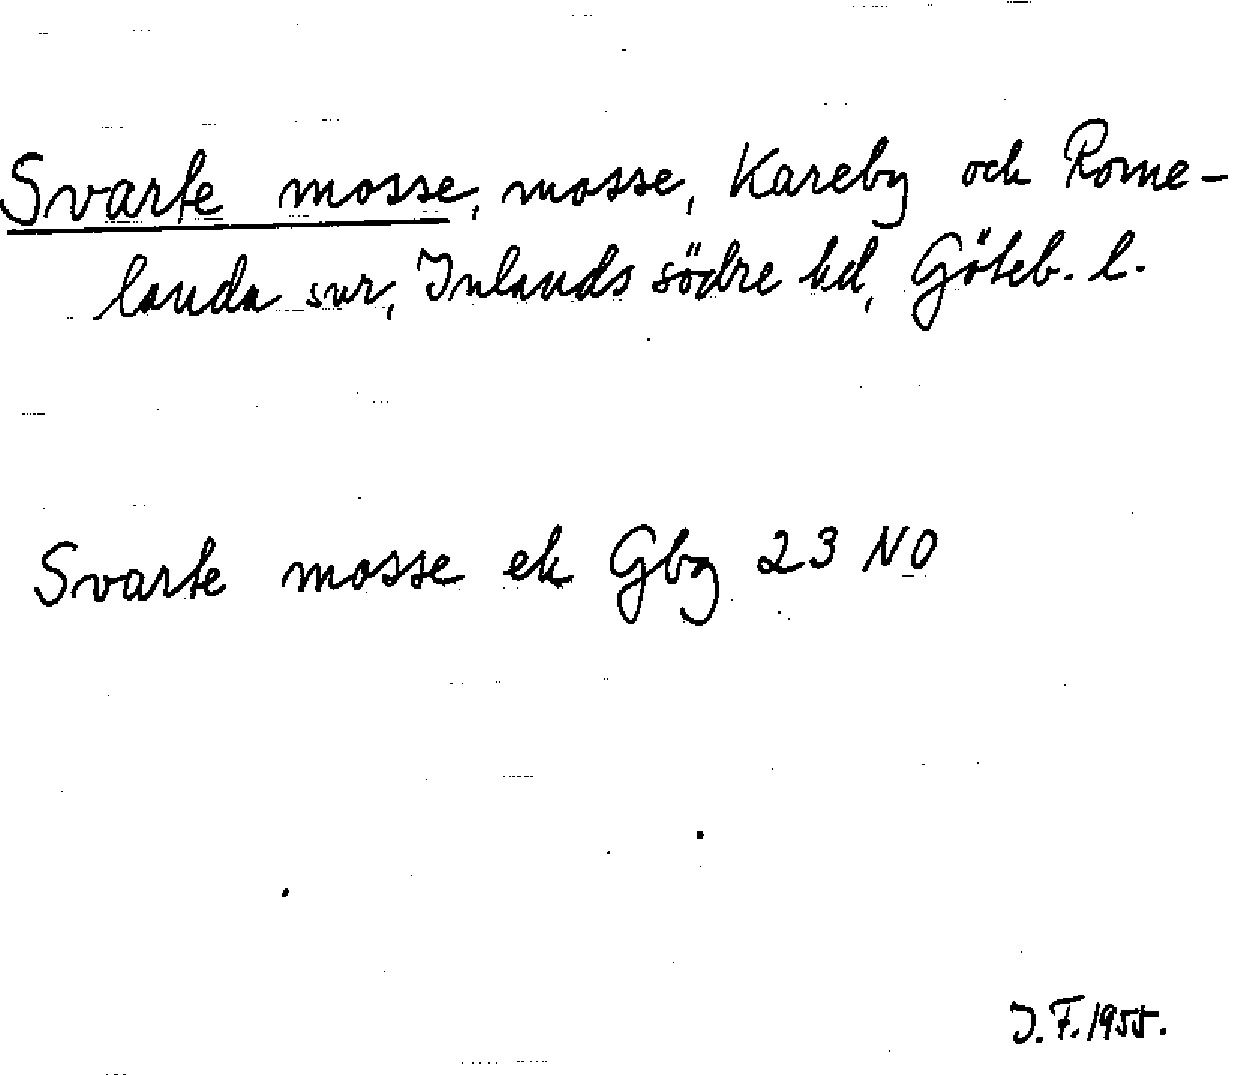 Svarte mosse, mosse, Kareby och Rome-
landa snr, Inlands södre hd, Göteb. l.
Svarte mosse ek Gbg 23 NO
J. F. 1955.